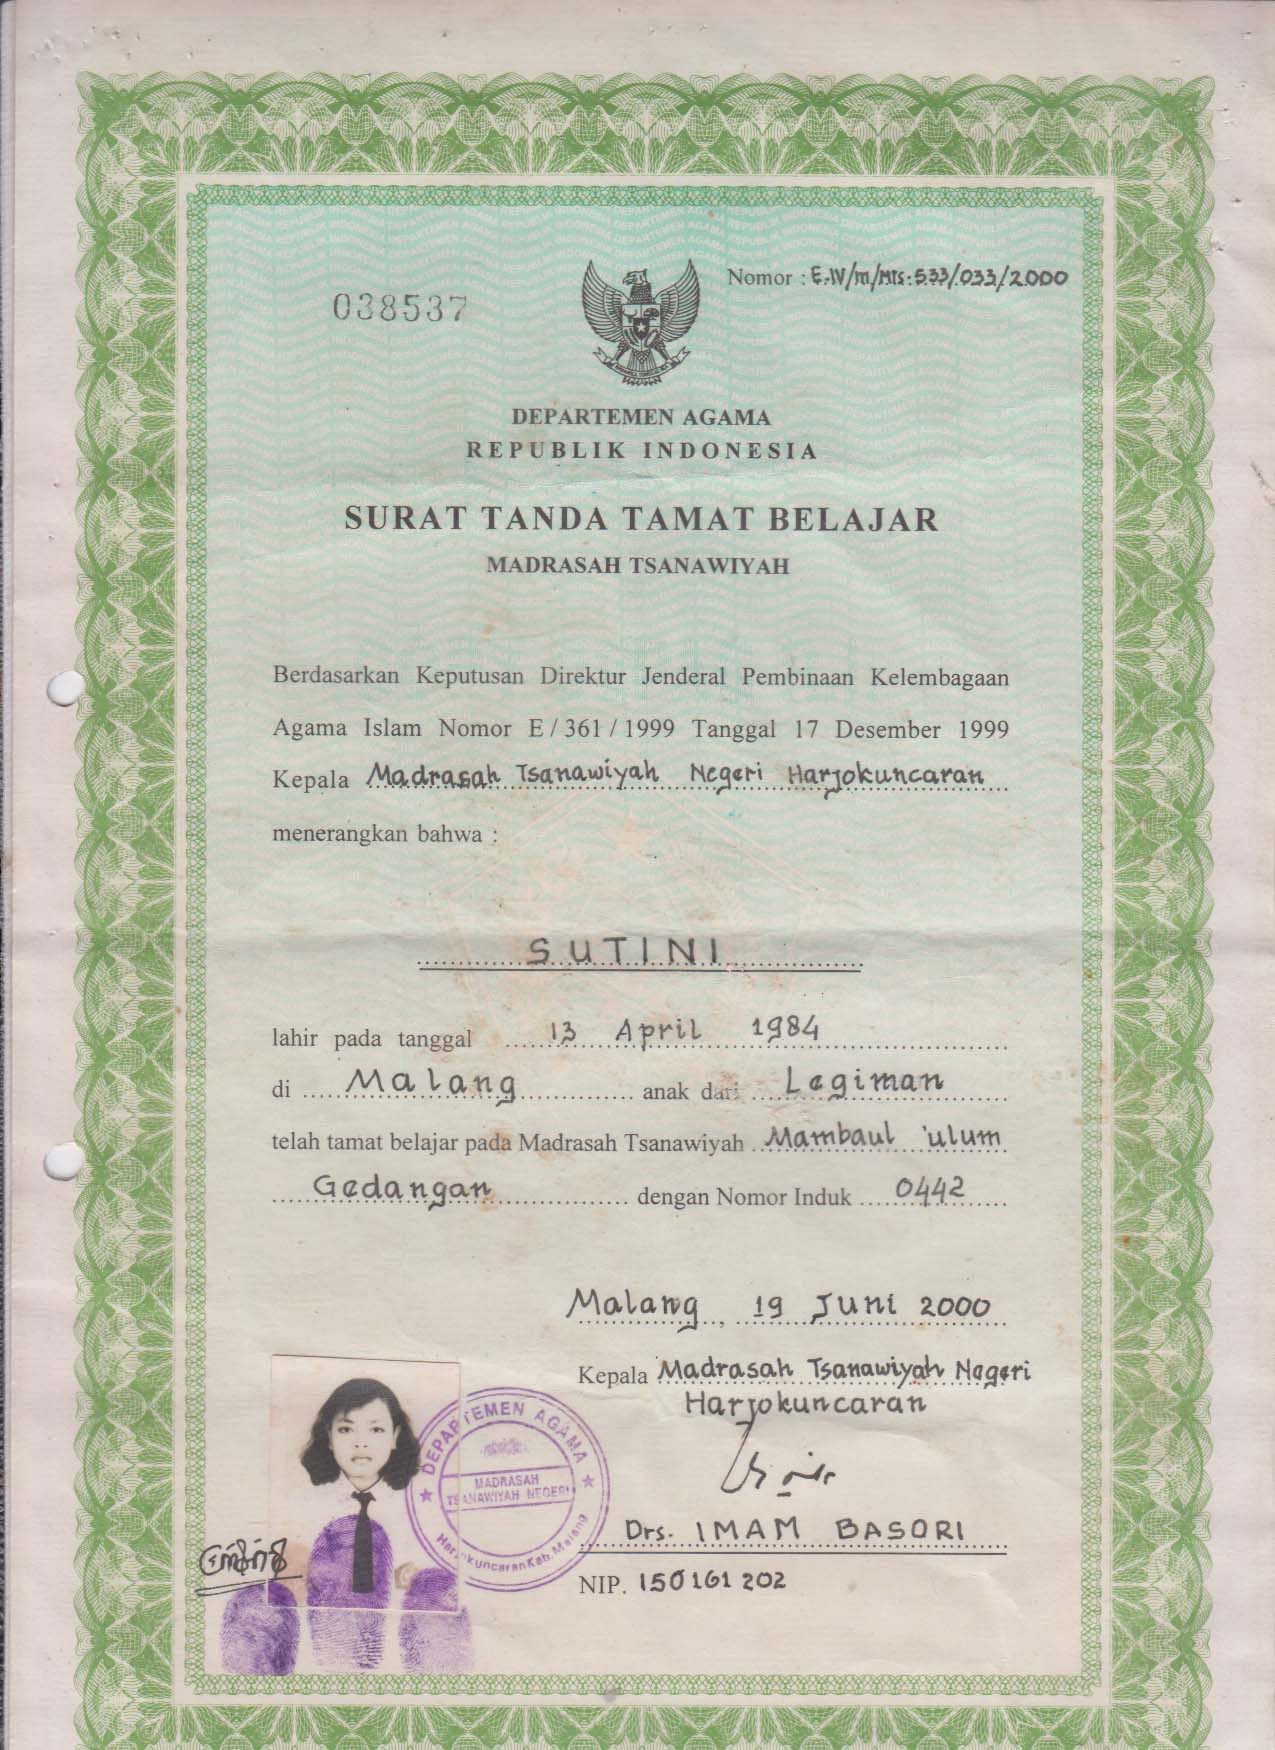 038537
Nomor : E.IV/m/MTs.533/033/2000
DEPARTEMEN AGAMA
REPUBLIK INDONESIA
SURAT TANDA TAMAT BELAJAR
MADRASAH TSANAWIYAH
Berdasarkan Keputusan Direktur Jenderal Pembinaan Kelembagaan
Agama Islam Nomor E / 361 / 1999 Tanggal 17 Desember 1999
Kepala Madrasah Tsanawiyah Negeri Harjokuncaran
menerangkan bahwa :
SUTINI
lahir pada tanggal 13 April 1984
di Malang anak dari Legiman
telah tamat belajar pada Madrasah Tsanawiyah Mambaul 'ulum
Gedangan dengan Nomor Induk 0442
Malang, 19 Juni 2000
Kepala Madrasah Tsanawiyah Negeri
Harjokuncaran
DEPARTEMEN AGAMA
MADRASAH
TSANAWIYAH NEGERI
Harjokuncaran Kab. Malang
Drs. IMAM BASORI
NIP. 150161202